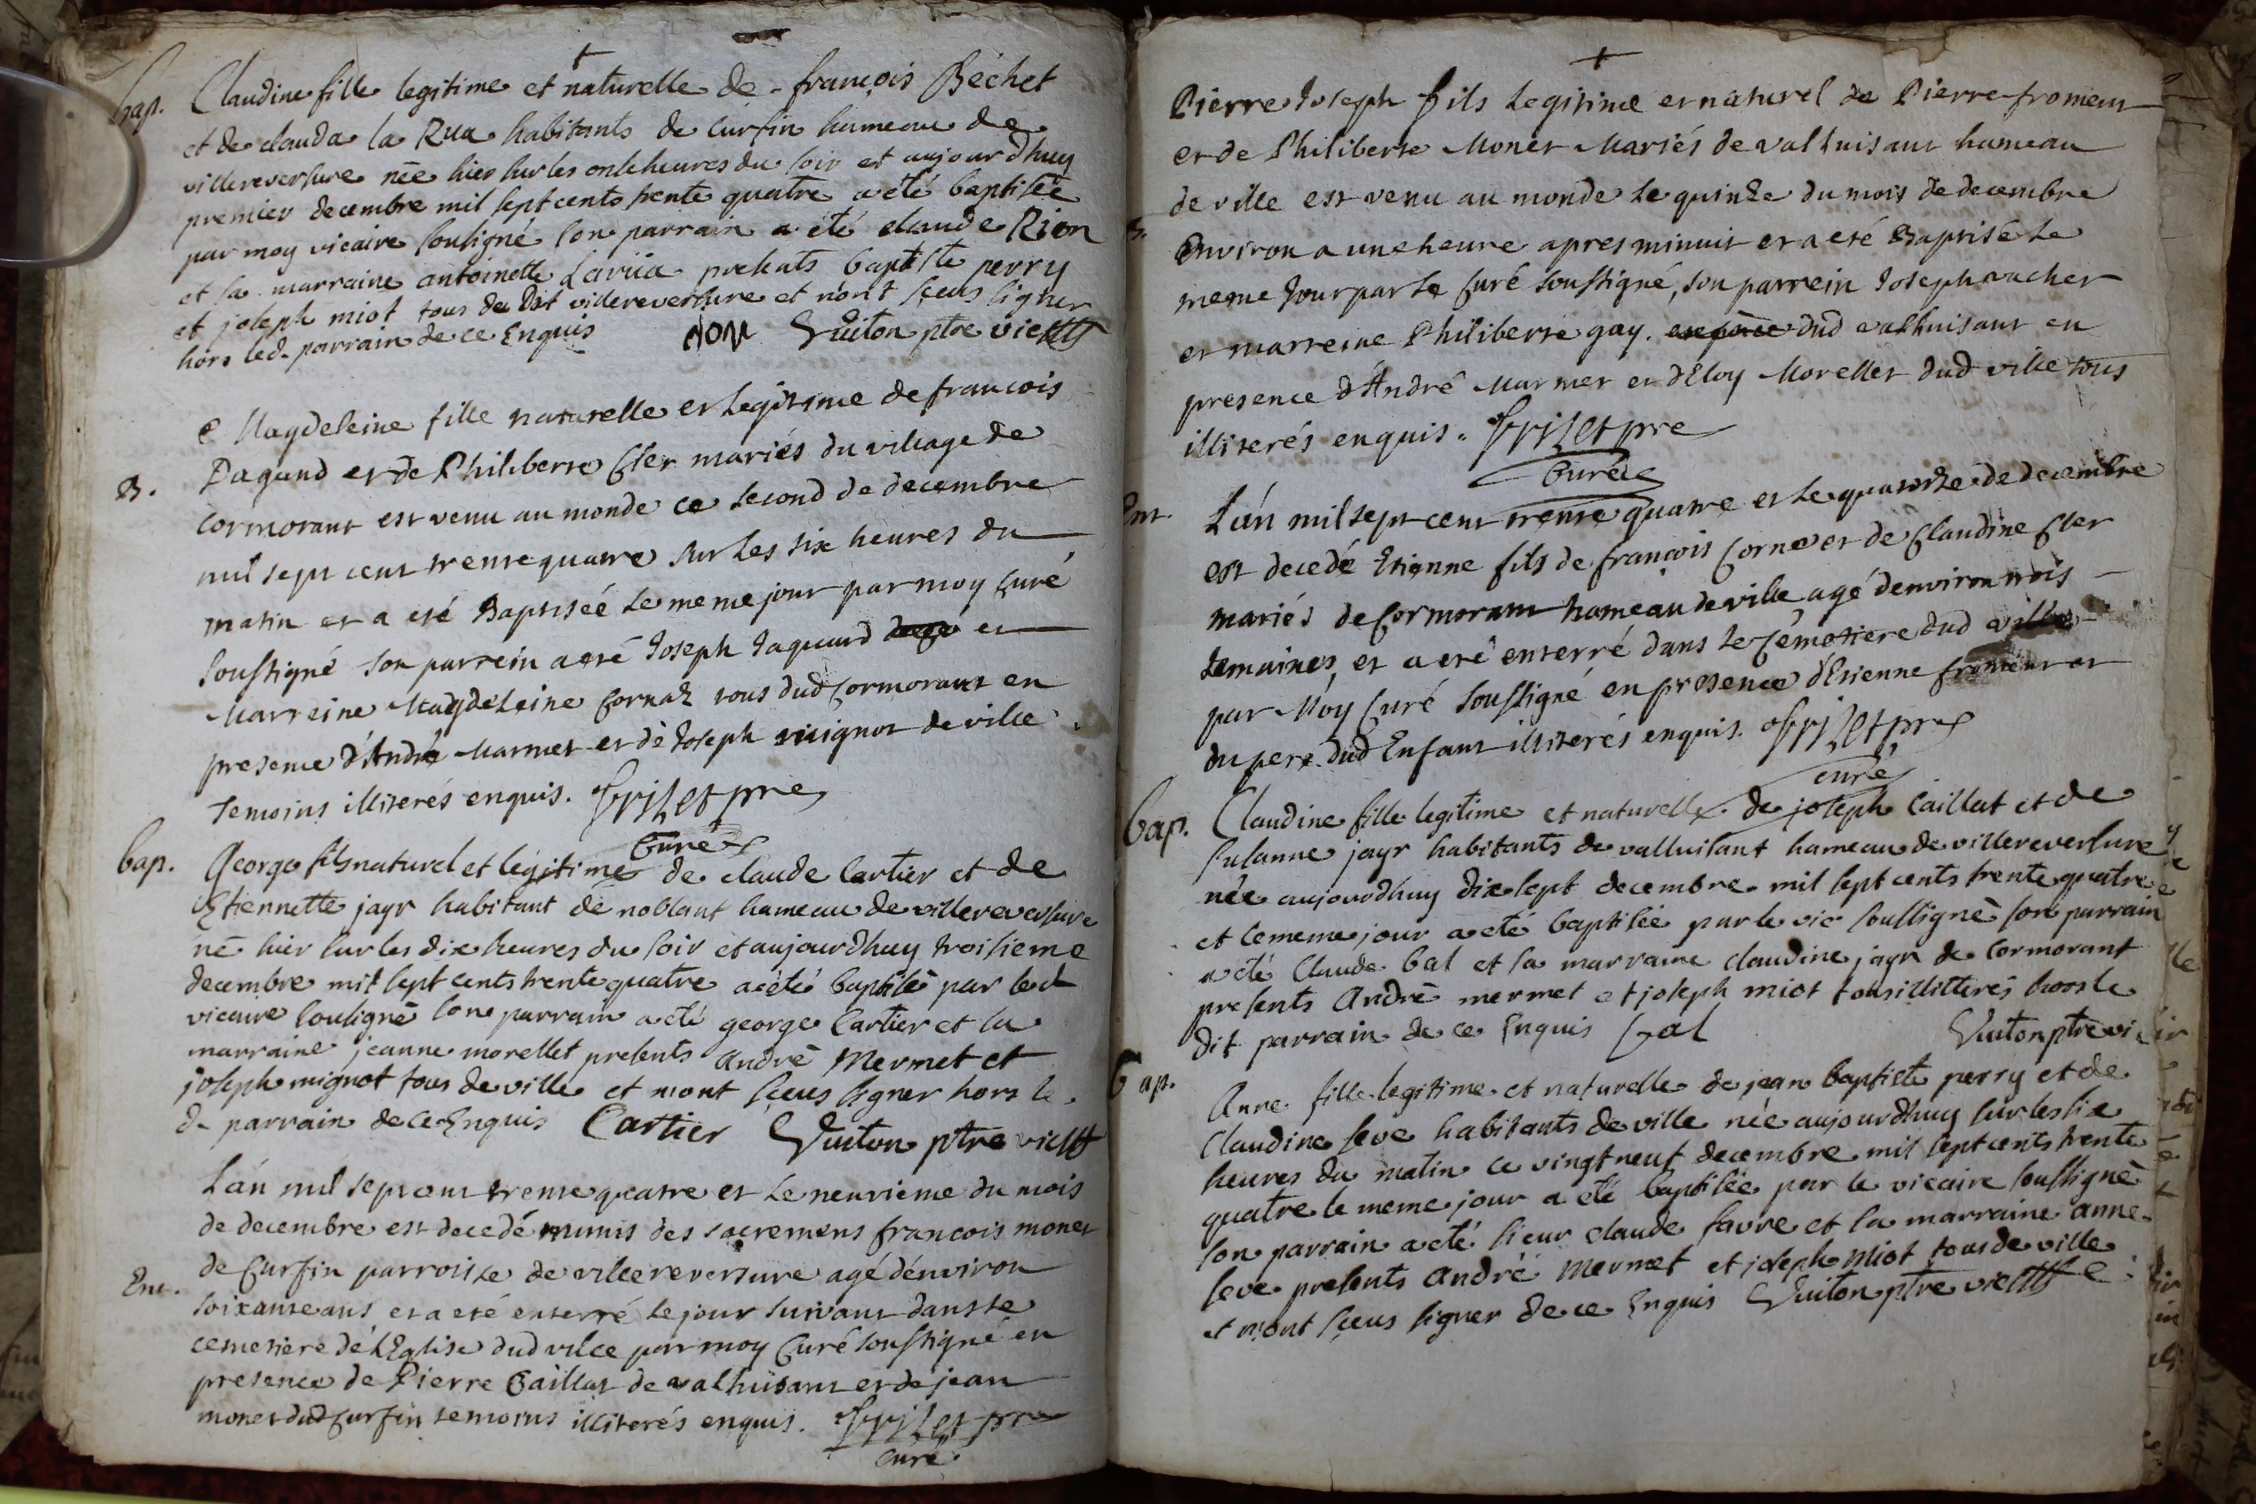 bap. Claudine fille legitime et naturelle de françois Béchet
et de clauda la Rua habitants de Cursin hameau de
villereversure née hier sur les onse heures du soir et aujourdhuy
premier decembre mil sept cents trente quatre a été baptisée
par moy vicaire sousigné son parrain a été claude Rion
et la marraine antoinette Lariia presents baptiste perry
et joseph miot tous du dit villereversure et n'ont sçeus signer
hors led. parrain de ce Enquis Guiton ptre vic
Magdeleine fille naturelle et legitime de francois
B. Dagand et de Philiberte Cler mariés du village de
Cormorant est venu au monde ce second de decembre
mil sept cent trente quatre sur les six heures du
matin et a eté Baptisée le meme jour par moy curé
soussigné son parrein a eté Joseph Jaquand et
Marreine Magdeleine Cornaz tous dud Cormorant en
presence d'André Marmet et de Joseph mignot de ville
temoins illiterés enquis. frilet pre
Curé
bap. George fils naturel et legitime de claude Cartier et de
Etiennette jayr habitant de noblant hameau de villereversure
né hier sur les dix heures du soir et aujourdhuy troisieme
decembre mil sept cents trente quatre a été baptisé par led
vicaire sousigné son parrain a été george Cartier et la
marraine jeanne morellet presents andré Mermet et
joseph mignot tous de ville et n'ont sçeus signer hors le
d. parrain de ce Enquis Cartier Guiton ptre vic
L'an mil sept cent trente quatre et le neuvieme du mois
de decembre est decedé munis des sacremens francois monet
Ent. de Cursin parroisse de villereversure agé d'environ
soixante ans et a eté enterré le jour suivant dans le
cemetiere de l'Eglise dud ville par moy Curé soussigné en
presence de Pierre Caillat de valhuisant et de jean
monet dud Cursin temoins illiterés enquis. frilet pre
curé
Pierre Joseph fils legitime et naturel de Pierre froment
et de Philiberte Monet Mariés de valhuisant hameau
de ville est venu au monde le quinze du mois de decembre
B. Environ a une heure apres minuit et a eté Baptisé le
meme Jour par le Curé soussigné, son parrein Joseph vacher
et marreine Philiberte gay. dud valhuisant en
presence d'André Marmet et d'Eloy Morellet dud ville tous
illiterés enquis. frilet pre
Curé
Ent. L'an mil sept cent trente quatre et le quatorze de decembre
est decedé Etienne fils de françois Corne et de Claudine Cler
mariés de Cormorant hameau de ville agé denviron trois
semaines, et a eté enterré dans le Cemetiere dud ville
par Moy Curé soussigné en presence d'Etienne froment et
du pere dud Enfant illiterés enquis. frilet pre
curé
bap. Claudine fille legitime et naturelle de joseph Caillat et de
susanne jayr habitants de valluisant hameau de villereversure
née aujourdhuy dix sept decembre mil sept cents trente quatre
et le meme jour a été baptisée par le vic soussigné son parrain
a été Claude Gal et sa marraine claudine jayr de Cormorant
presents André mermet et joseph miot tous illitterés hors le
dit parrain de ce Enquis Gal Guiton ptre vic
bap. Anne fille legitime et naturelle de jean baptiste perry et de
Claudine seve habitants de ville née aujourdhuy sur les six
heures du matin ce vingt neuf decembre mil sept cents trente
quatre le meme jour a été baptisée par le vicaire soussigné
son parrain a été sieur claude favre et la marraine anne
seve presents André Mermet et joseph Miot tous de ville
et n'ont sçeus signer de ce Enquis Guiton ptre vic